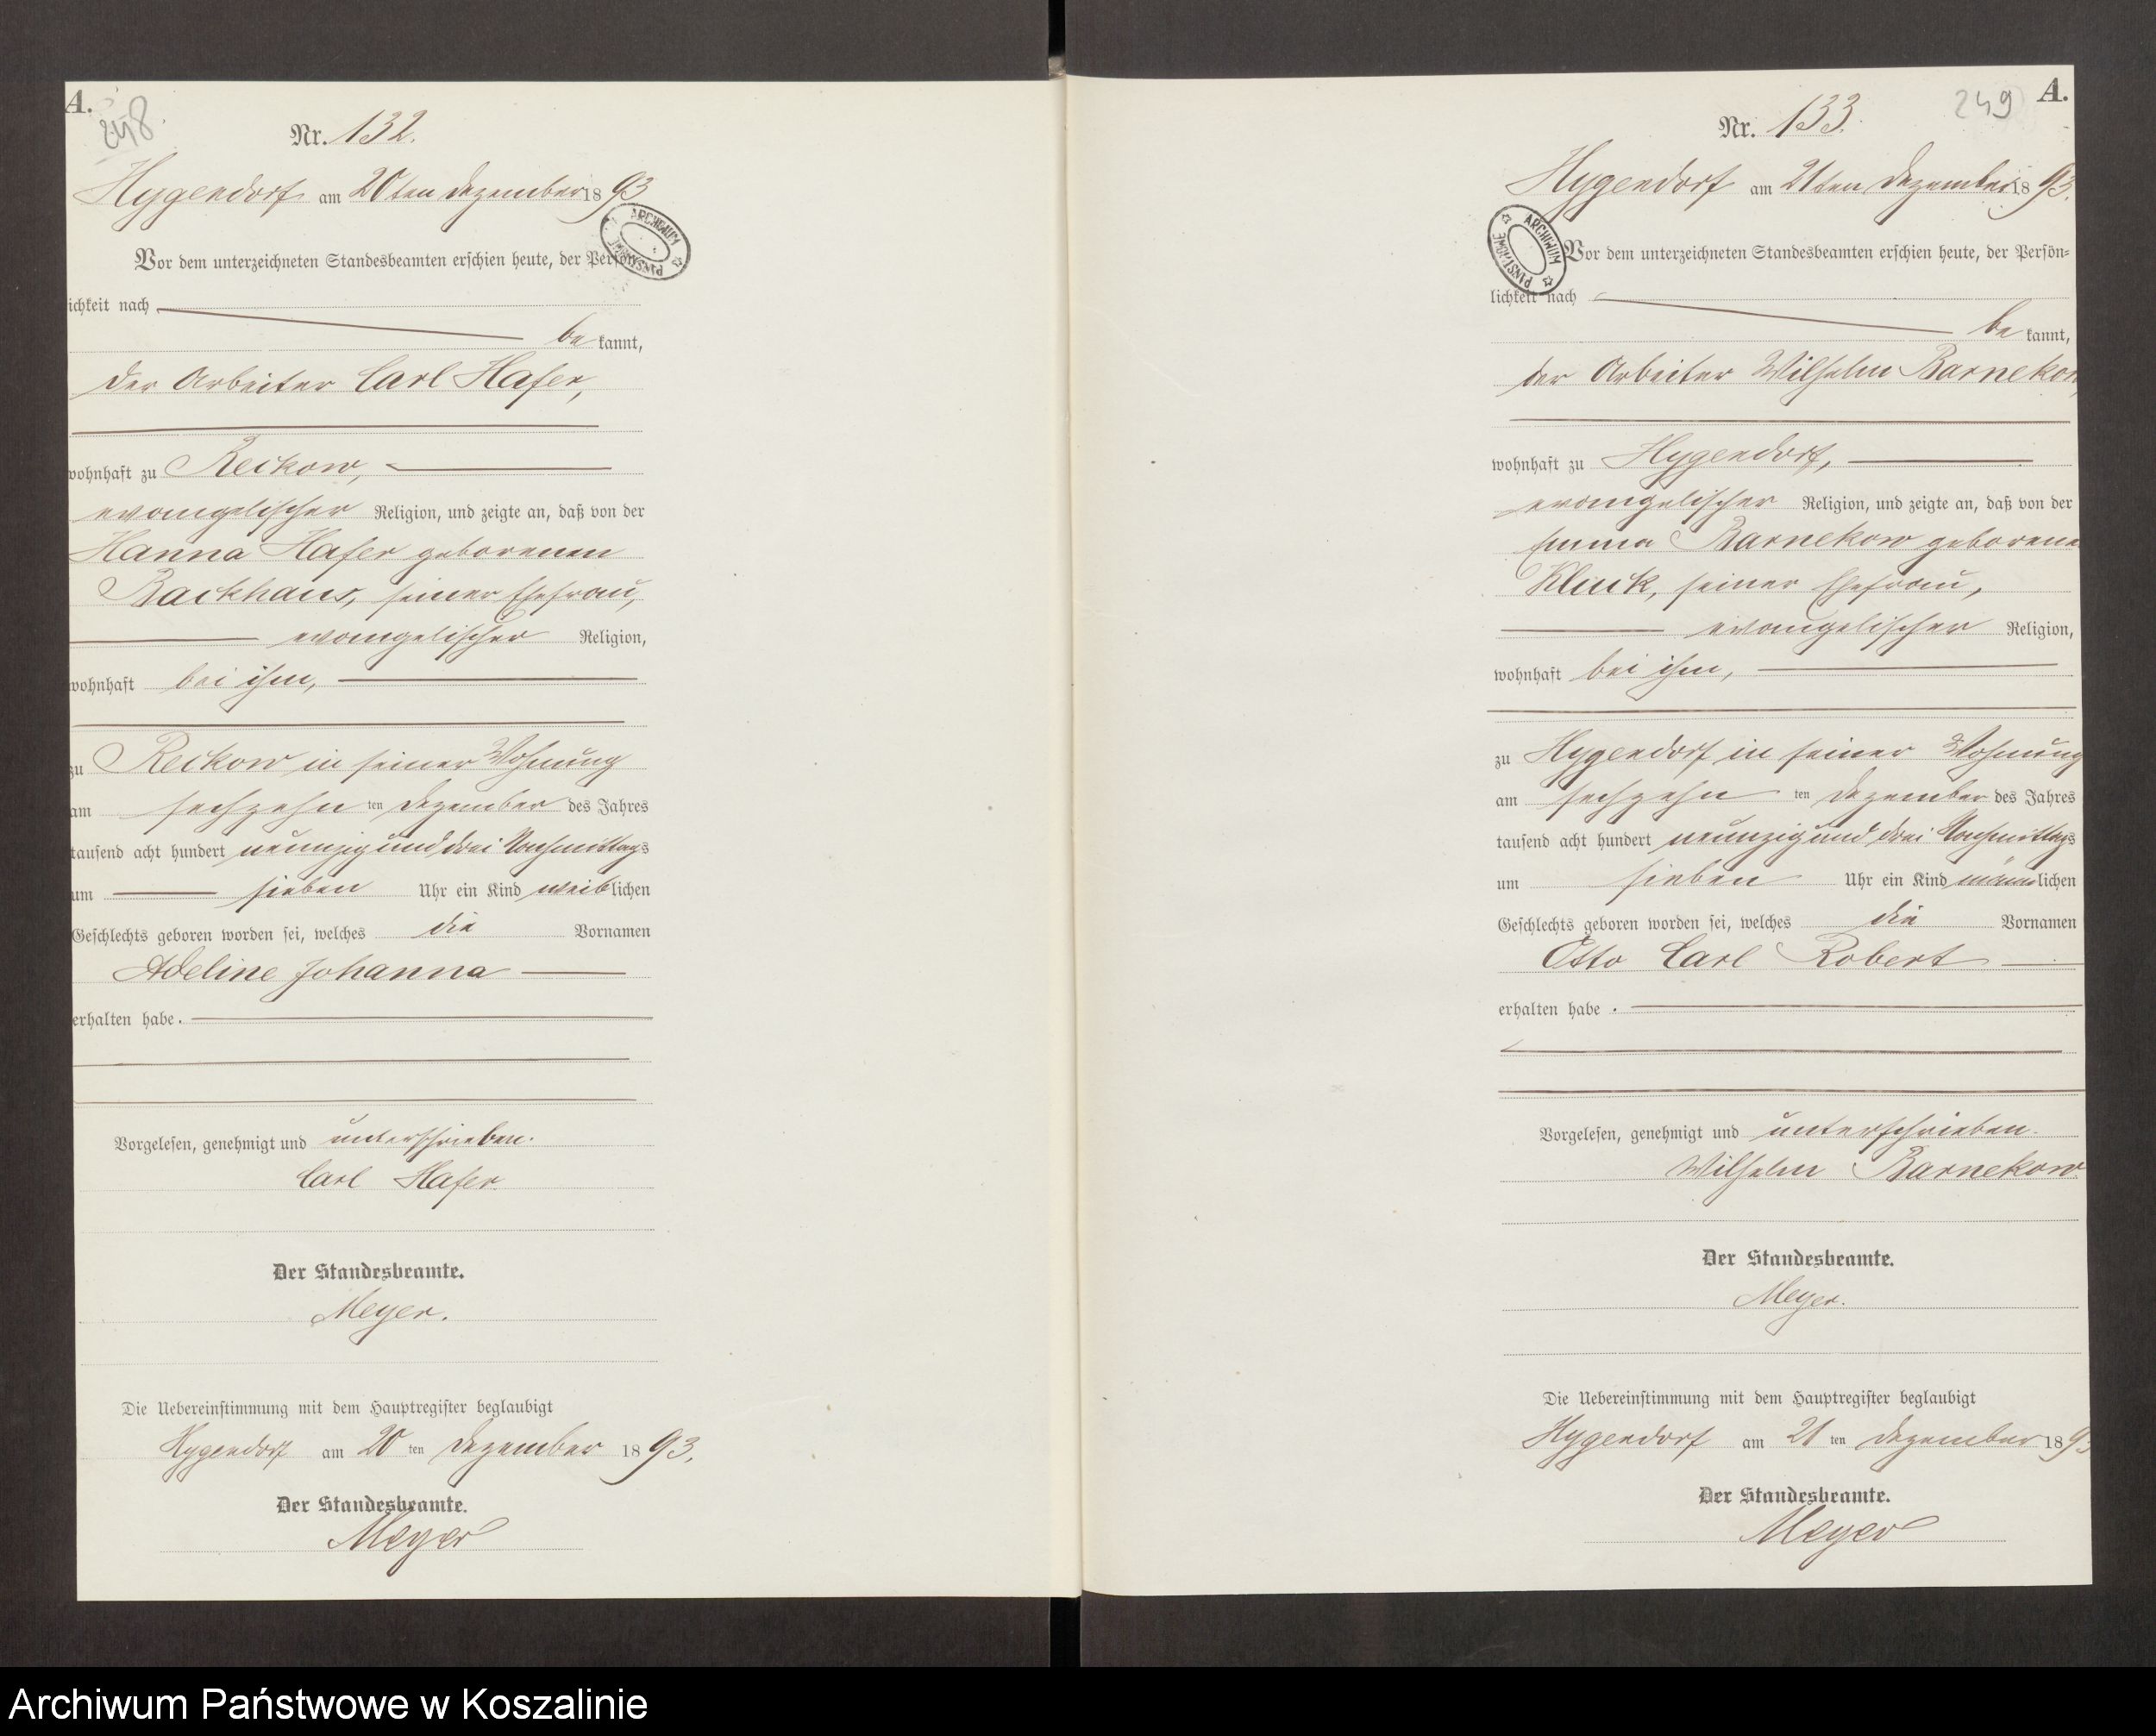 A.
248
Nr. 132.
Hygendorf am 20ten Dezember 1893
ARCHIWUM PAŃSTWOWE
Vor dem unterzeichneten Standesbeamten erschien heute, der Persön-
lichkeit nach
be kannt,
der Arbeiter Carl Hafer,
wohnhaft zu Reckow,
evangelischer Religion, und zeigte an, daß von der
Hanna Hafer geborenen
Backhaus, seiner Ehefrau,
evangelischer Religion,
wohnhaft bei ihm,
zu Reckow in seiner Wohnung
am sechzehn ten Dezember des Jahres
tausend acht hundert neunzig und drei Nachmittags
um sieben Uhr ein Kind weiblichen
Geschlechts geboren worden sei, welches die Vornamen
Adeline Johanna
erhalten habe.
Vorgelesen, genehmigt und unterschrieben.
Carl Hafer
Der Standesbeamte.
Meyer.
Die Uebereinstimmung mit dem Hauptregister beglaubigt
Hygendorf am 20 ten Dezember 1893.
Der Standesbeamte.
Meyer
249
A.
Nr. 133.
Hygendorf am 21ten Dezember 1893.
ARCHIWUM PAŃSTWOWE
Vor dem unterzeichneten Standesbeamten erschien heute, der Persön-
lichkeit nach
be kannt,
der Arbeiter Wilhelm Barnekow,
wohnhaft zu Hygendorf,
evangelischer Religion, und zeigte an, daß von der
Emma Barnekow geborene
Kluck, seiner Ehefrau,
evangelischer Religion,
wohnhaft bei ihm,
zu Hygendorf in seiner Wohnung
am sechzehn ten Dezember des Jahres
tausend acht hundert neunzig und drei Nachmittags
um sieben Uhr ein Kind männlichen
Geschlechts geboren worden sei, welches die Vornamen
Otto Carl Robert
erhalten habe.
Vorgelesen, genehmigt und unterschrieben.
Wilhelm Barnekow.
Der Standesbeamte.
Meyer.
Die Uebereinstimmung mit dem Hauptregister beglaubigt
Hygendorf am 21 ten Dezember 1893
Der Standesbeamte.
Meyer
Archiwum Państwowe w Koszalinie